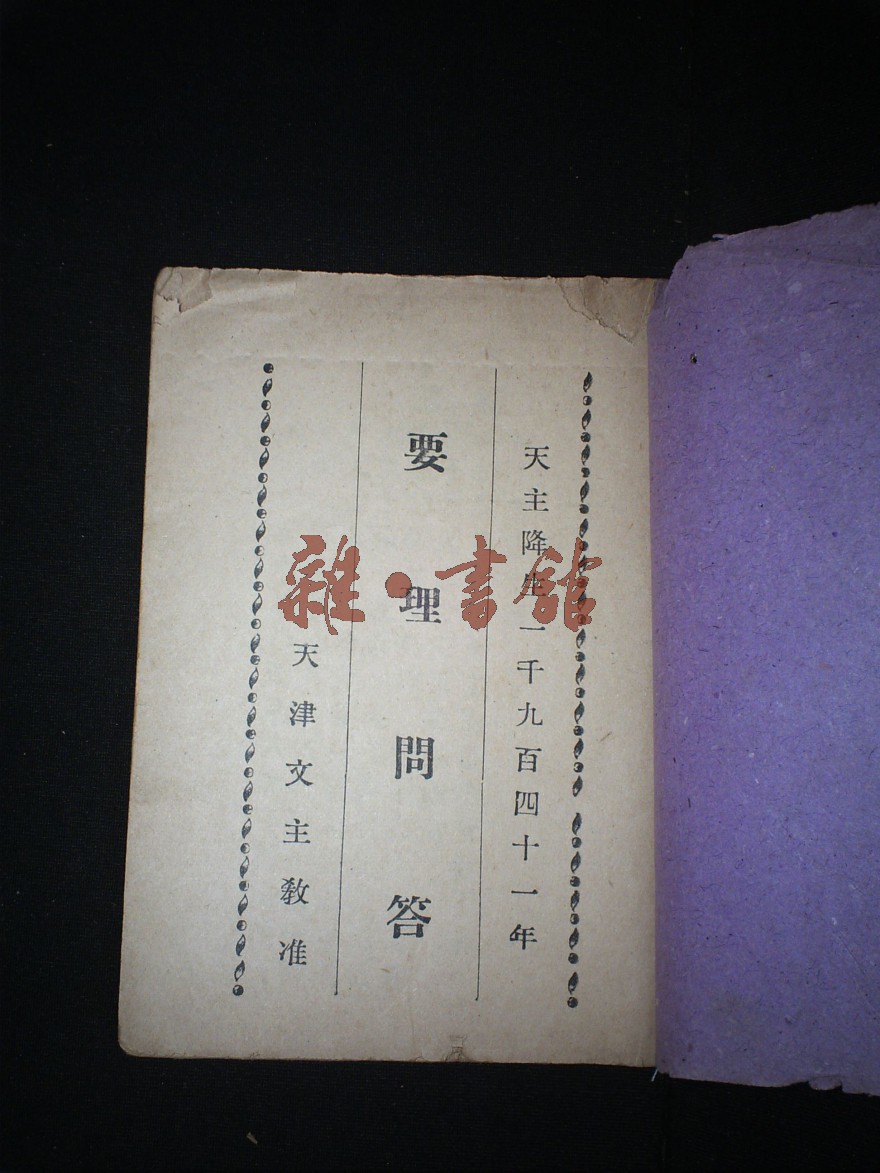 天主降生一千九百四十一年
要理問答
天津文主教准
雜·書館